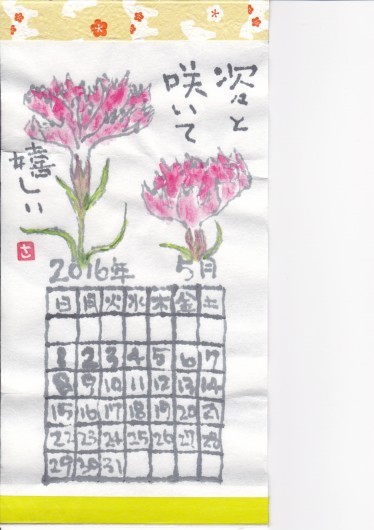 次々と
咲いて
嬉しい
さ
2016年 5月
日 月 火 水 木 金 土
1 2 3 4 5 6 7
8 9 10 11 12 13 14
15 16 17 18 19 20 21
22 23 24 25 26 27 28
29 30 31